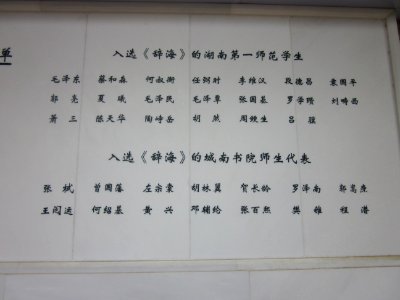 单
入选《辞海》的湖南第一师范学生
毛泽东 蔡和森 何叔衡 任弼时 李维汉 段德昌 袁国平
郭亮 夏曦 毛泽民 毛泽覃 张国基 罗学瓒 刘畴西
萧三 陈天华 陶峙岳 胡然 周谷生 吕骥
入选《辞海》的城南书院师生代表
张栻 曾国藩 左宗棠 胡林翼 贺长龄 罗泽南 郭嵩焘
王闿运 何绍基 黄兴 邓辅纶 张百熙 樊锥 程潜